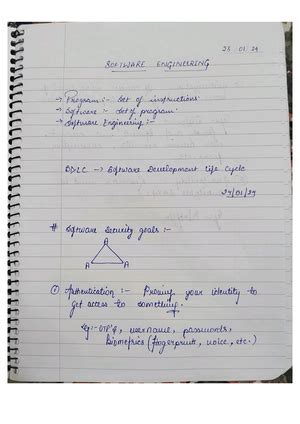 23.01.24
SOFTWARE ENGINEERING
→ Program :- Set of instructions.
→ Software :- Set of program.
→ Software Engineering :-
SDLC → Software Development Life Cycle
24/01/24
# Software Security goals :-
A
A A
① Authentication :- Proving your identity to
get access to something.
Eg:- OTP's, username, passwords,
Biometrics (fingerprint, voice, etc.)